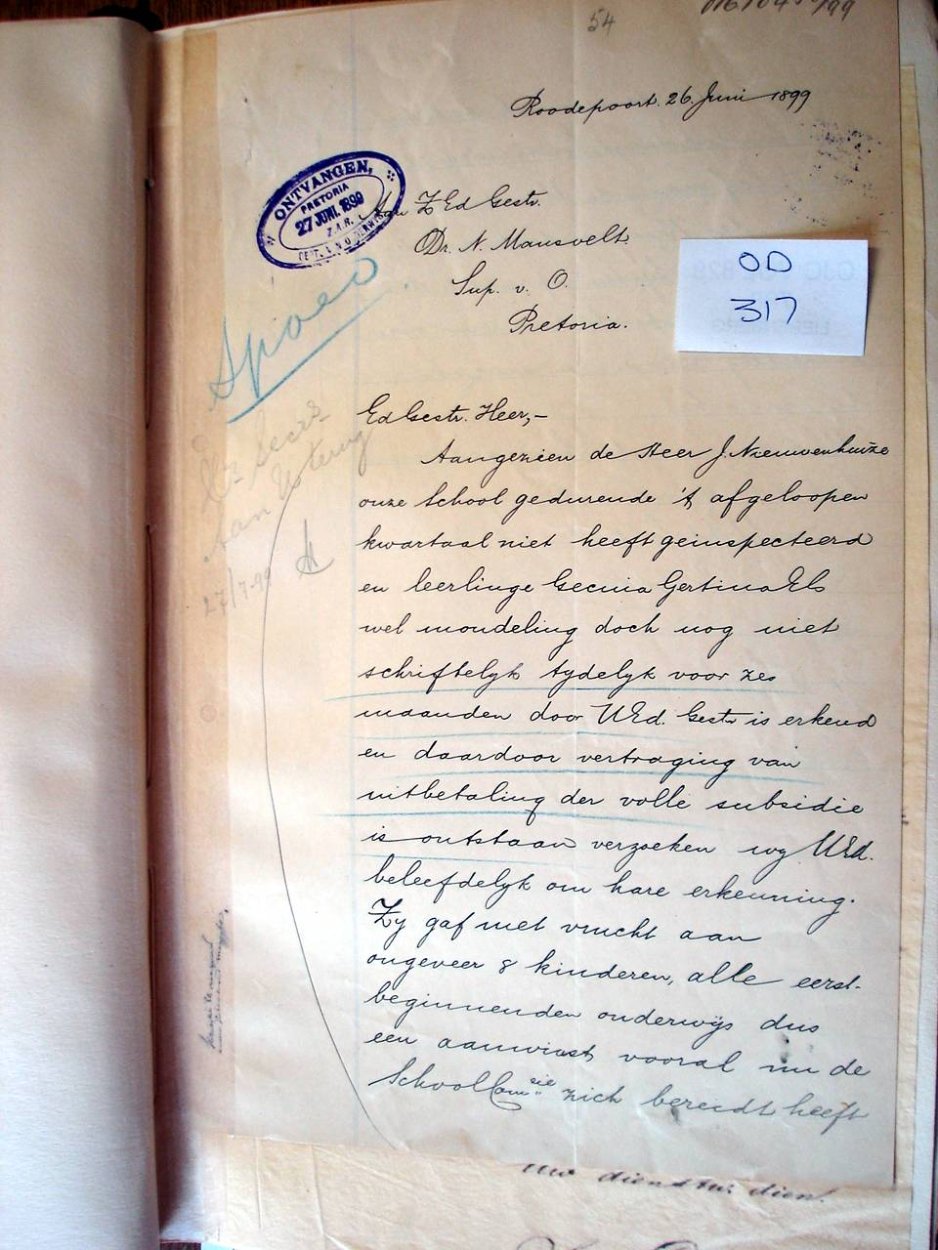 54
Roodepoort. 26 Juni 1899
ONTVANGEN,
PRETORIA
27 JUNI. 1899
Z.A.R.
Aan Z Ed Gestr.
Dr. N. Mansvelt
Sup. v. O.
Pretoria.
OD
317
Spoed
Ed Gestr. Heer,-
Aangezien de Heer J. Nieuwenhuize
onze School gedurende 't afgeloopen
kwartaal niet heeft geinspecteerd
en leerlinge Gecina Gertina Els
wel mondeling doch nog niet
schriftelyk tydelyk voor zes
maanden door UEd. Gestr is erkend
en daardoor vertraging van
uitbetaling der volle subsidie
is ontstaan verzoeken wy UEd.
beleefdelyk om hare erkenning.
Zy gaf met vrucht aan
ongeveer 8 kinderen, alle eerst-
beginnenden onderwijs dus
een aanwinst vooral nu de
SchoolComzie zich bereidt heeft
Secrs
terug
aan
27/7-99
uw dienstw: dien.